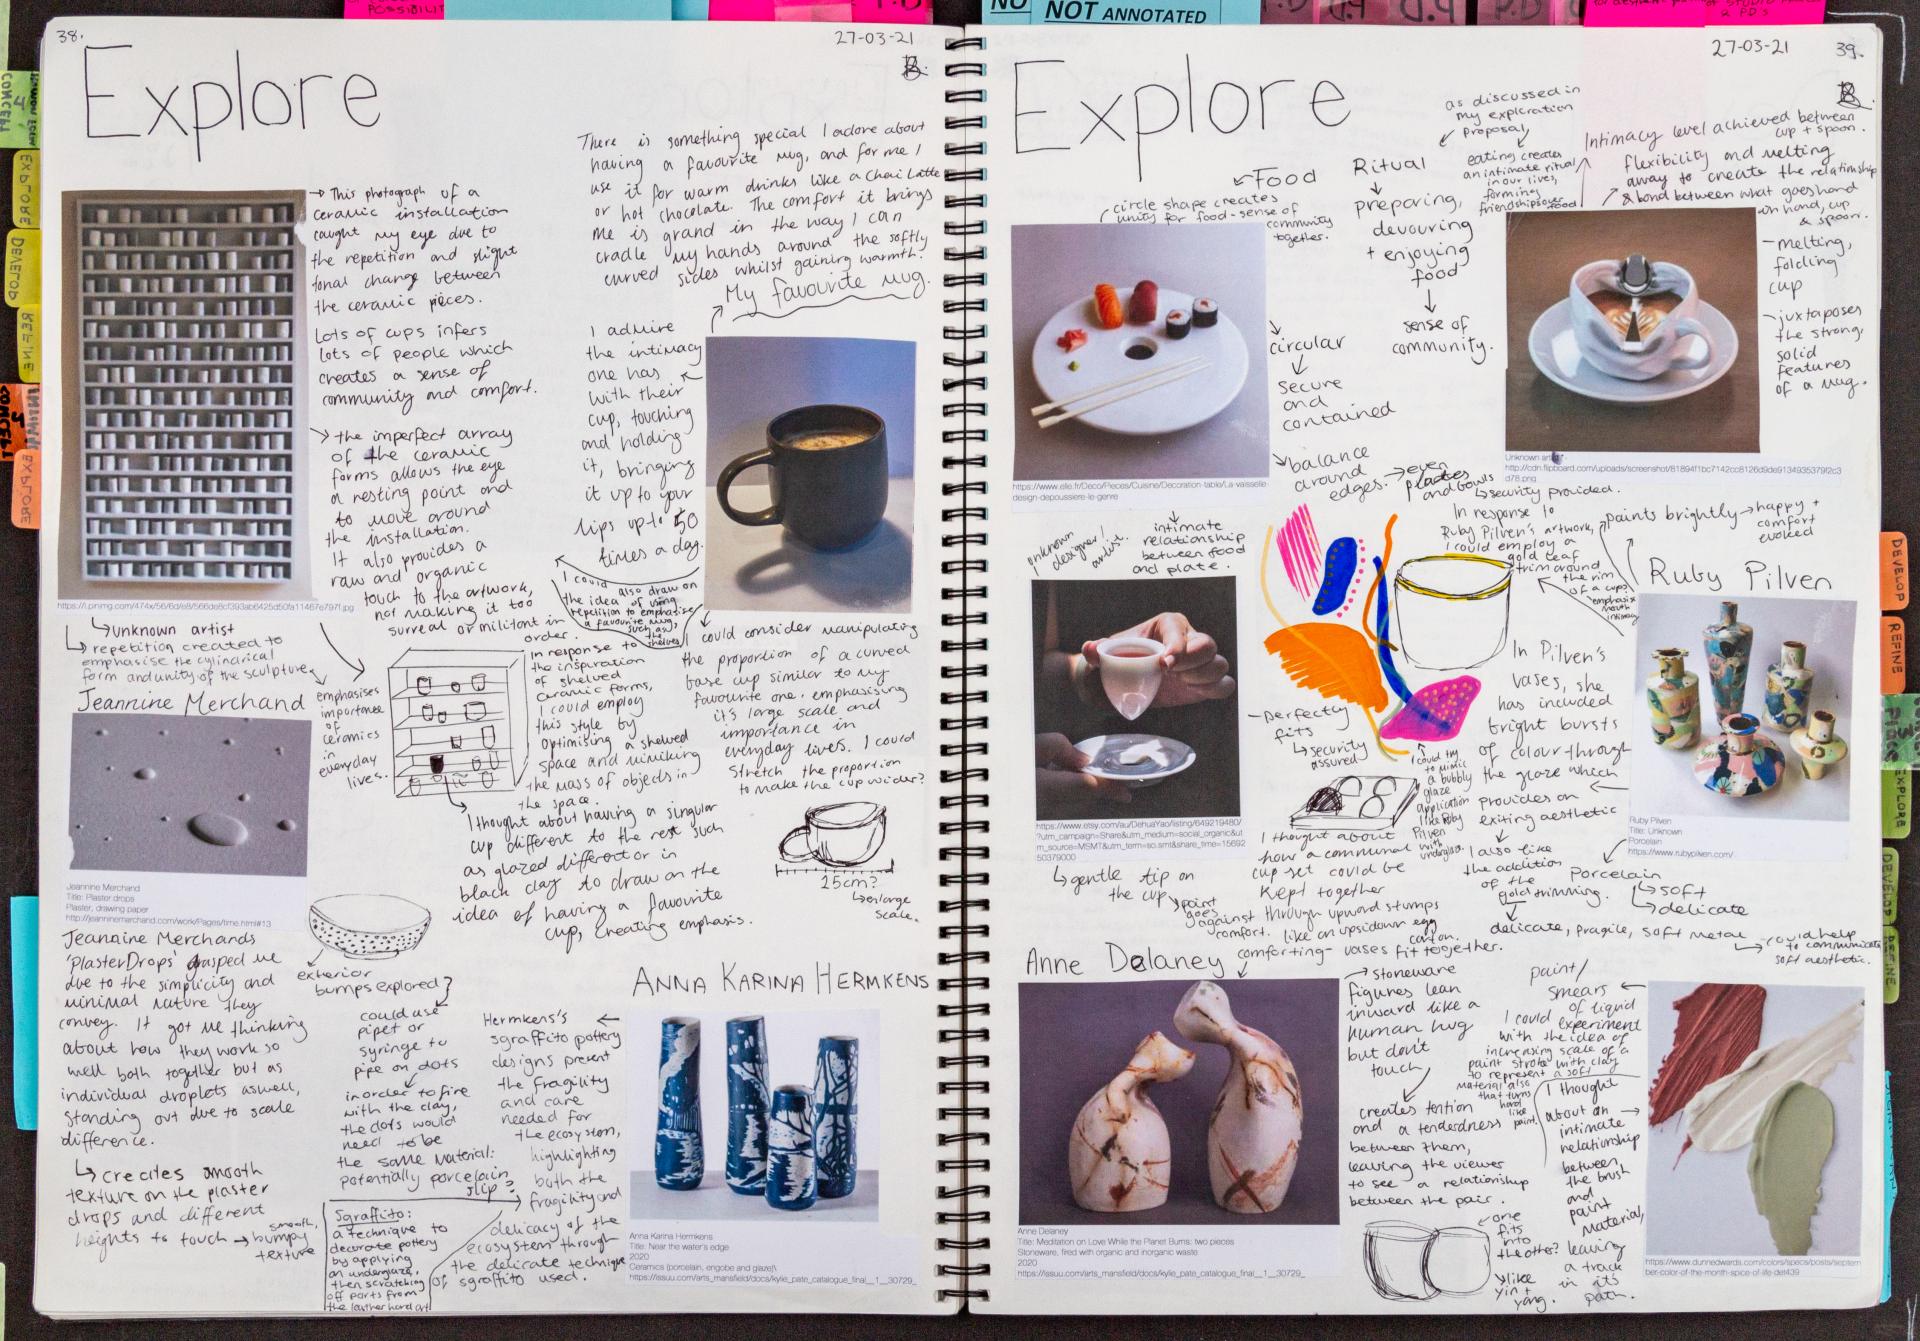 POSSIBILIT
NO
NOT ANNOTATED
P.D
CONCEPT
4
EXPLORE
DEVELOP
REFINE
EXPLORE
38.
27-03-21
Explore
→ This photograph of a
ceramic installation
caught my eye due to
the repetition and slight
tonal change between
the ceramic pieces.
Lots of cups infers
lots of people which
creates a sense of
community and comfort.
↘ the imperfect array
of the ceramic
forms allows the eye
a resting point and
to move around
the installation.
It also provides a
raw and organic
touch to the artwork,
not making it too
surreal or militant in
order.
There is something special I adore about
having a favourite mug, and for me I
use it for warm drinks like a Chai Latte
or hot chocolate. The comfort it brings
me is grand in the way I can
cradle my hands around the softly
curved sides whilst gaining warmth.
My favourite mug.
I admire
the intimacy
one has
with their
cup, touching
and holding
it, bringing
it up to your
lips up to 50
times a day.
I could also draw on
the idea of using
repetition to emphasise
a favourite mug,
such as
the shelves
https://i.pinimg.com/474x/56/6d/e8/566de8cf393ab6425d50fa11467e797f.jpg
↳ unknown artist
↳ repetition created to
emphasise the cylindrical
form and unity of the sculpture
emphasises
importance
of
ceramics
in
everyday
lives.
In response to
the inspiration
of shelved
ceramic forms,
I could employ
this style by
optimising a shelved
space and mimiking
the mass of objects in
the space.
I could consider manipulating
the proportion of a curved
base cup similar to my
favourite one. emphasising
it's large scale and
importance in
everyday lives. I could
stretch the proportion
to make the cup wider?
25cm?
↳ enlarge
scale.
I thought about having a singular
cup different to the rest such
as glazed different or in
black clay to draw on the
idea of having a favourite
cup, creating emphasis.
Jeannine Merchand
Jeannine Merchand
Title: Plaster drops
Plaster, drawing paper
http://jeanninemerchand.com/work/Pages/time.html#13
Jeannine Merchands
'Plaster Drops' grasped me
due to the simplicity and
minimal nature they
convey. It got me thinking
about how they work so
well both together but as
individual droplets aswell,
standing out due to scale
difference.
↳ creates smooth
texture on the plaster
drops and different
heights to touch → bumpy
smooth,
texture
exterior
bumps explored?
could use
pipet or
syringe to
pipe on dots
in order to fire
with the clay,
the dots would
need to be
the same material:
potentially porcelain
slip?
Sgraffito:
a technique to
decorate pottery
by applying
an underglaze,
then scratching
off parts from
the leather hard art
ANNA KARINA HERMKENS
Hermkens's
sgraffito pottery
designs present
the fragility
and care
needed for
the ecosystem,
highlighting
both the
fragility and
delicacy of the
ecosystem through
the delicate technique
of sgraffito used.
Anna Karina Hermkens
Title: Near the water's edge
2020
Ceramics (porcelain, engobe and glaze)
https://issuu.com/arts_mansfield/docs/kylie_pate_catalogue_final__1__30729_
27-03-21
39.
Explore
as discussed in
my exploration
proposal
Food
Ritual
preparing,
devouring
+ enjoying
food
sense of
community.
eating creates
an intimate ritual
in our lives,
forming
friendships over food
Intimacy level achieved between
cup + spoon.
flexibility and melting
away to create the relationship
& bond between what goes hand
in hand, cup
& spoon.
- melting,
folding
cup
juxtaposes
the strong,
solid
features
of a mug.
circle shape creates
unity for food - sense of
community
together.
circular
secure
and
contained
balance
around
edges. → even
plates
and bowls
↳ security provided.
https://www.elle.fr/Deco/Pieces/Cuisine/Decoration-table/La-vaisselle-
design-depoussiere-le-genre
Unknown artist
http://cdn.flipboard.com/uploads/screenshot/81894f1bc7142cc8126d9de9134935379f2c3
d78.png
unknown
designer/
artist.
intimate
relationship
between food
and plate.
- perfectly
fits
↳ security
assured
https://www.etsy.com/au/DehuaYao/listing/649219480/
?utm_campaign=Share&utm_medium=social_organic&ut
m_source=MSMT&utm_term=so.smt&share_time=15692
50379000
↳ gentle tip on
the cup
point
goes
against
comfort.
I thought about
how a communal
cup set could be
kept together
through upward stumps
like an upsidown egg
carton.
comforting - vases fit together.
I could try
to mimic
a bubbly
glaze
application
like Ruby
Pilven
with
underglaze.
In response to
Ruby Pilven's artwork,
I could employ a
gold leaf
trim around
the rim
of a cup?
emphasis
mouth
intimacy
paints brightly → happy +
comfort
evoked
Ruby Pilven
In Pilven's
vases, she
has included
bright bursts
of colour through
the glaze which
provides an
exiting aesthetic
I also like
the addition
of the
gold trimming.
delicate, fragile, soft metal
↳ could help
to communicate
soft aesthetic.
Porcelain
↳ soft
↳ delicate
Ruby Pilven
Title: Unknown
Porcelain
https://www.rubypilven.com/
Anne Delaney
→ stoneware
figures lean
inward like a
human hug
but don't
touch
creates tention
and a tenderdness
between them,
leaving the viewer
to see a relationship
between the pair.
Anne Delaney
Title: Meditation on Love While the Planet Burns: two pieces
Stoneware, fired with organic and inorganic waste
2020
https://issuu.com/arts_mansfield/docs/kylie_pate_catalogue_final__1__30729_
one
fits
into
the other?
↘ like
yin +
yang.
paint/
smears
of liquid
I could experiment
with the idea of
increasing scale of a
paint stroke with clay
to represent a soft
material also
that turns
hard
like
paint.
I thought
about an
intimate
relationship
between
the brush
and
paint
material,
leaving
a track
in it's
path.
https://www.dunnedwards.com/colors/specs/posts/septem
ber-color-of-the-month-spice-of-life-det439
DEVELOP
REFINE
EXPLORE
DEVELOP
REFINE